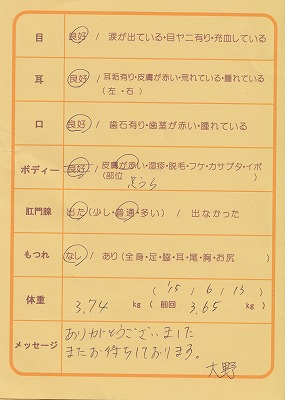 目 良好 / 涙が出ている・目ヤニ有り・充血している
耳 良好 / 耳垢有り・皮膚が赤い・荒れている・腫れている
(左・右)
口 良好 / 歯石有り・歯茎が赤い・腫れている
ボディー 良好 / 皮膚が赤い・湿疹・脱毛・フケ・カサブタ・イボ
(部位 足うら )
肛門腺 出た (少し・普通・多い) / 出なかった
もつれ なし / あり (全身・足・脇・耳・尾・胸・お尻 )
( '15 / 6 / 13 )
体重 3.74 kg ( 前回 3.65 kg )
メッセージ ありがとうございました
またお待ちしております。
大野